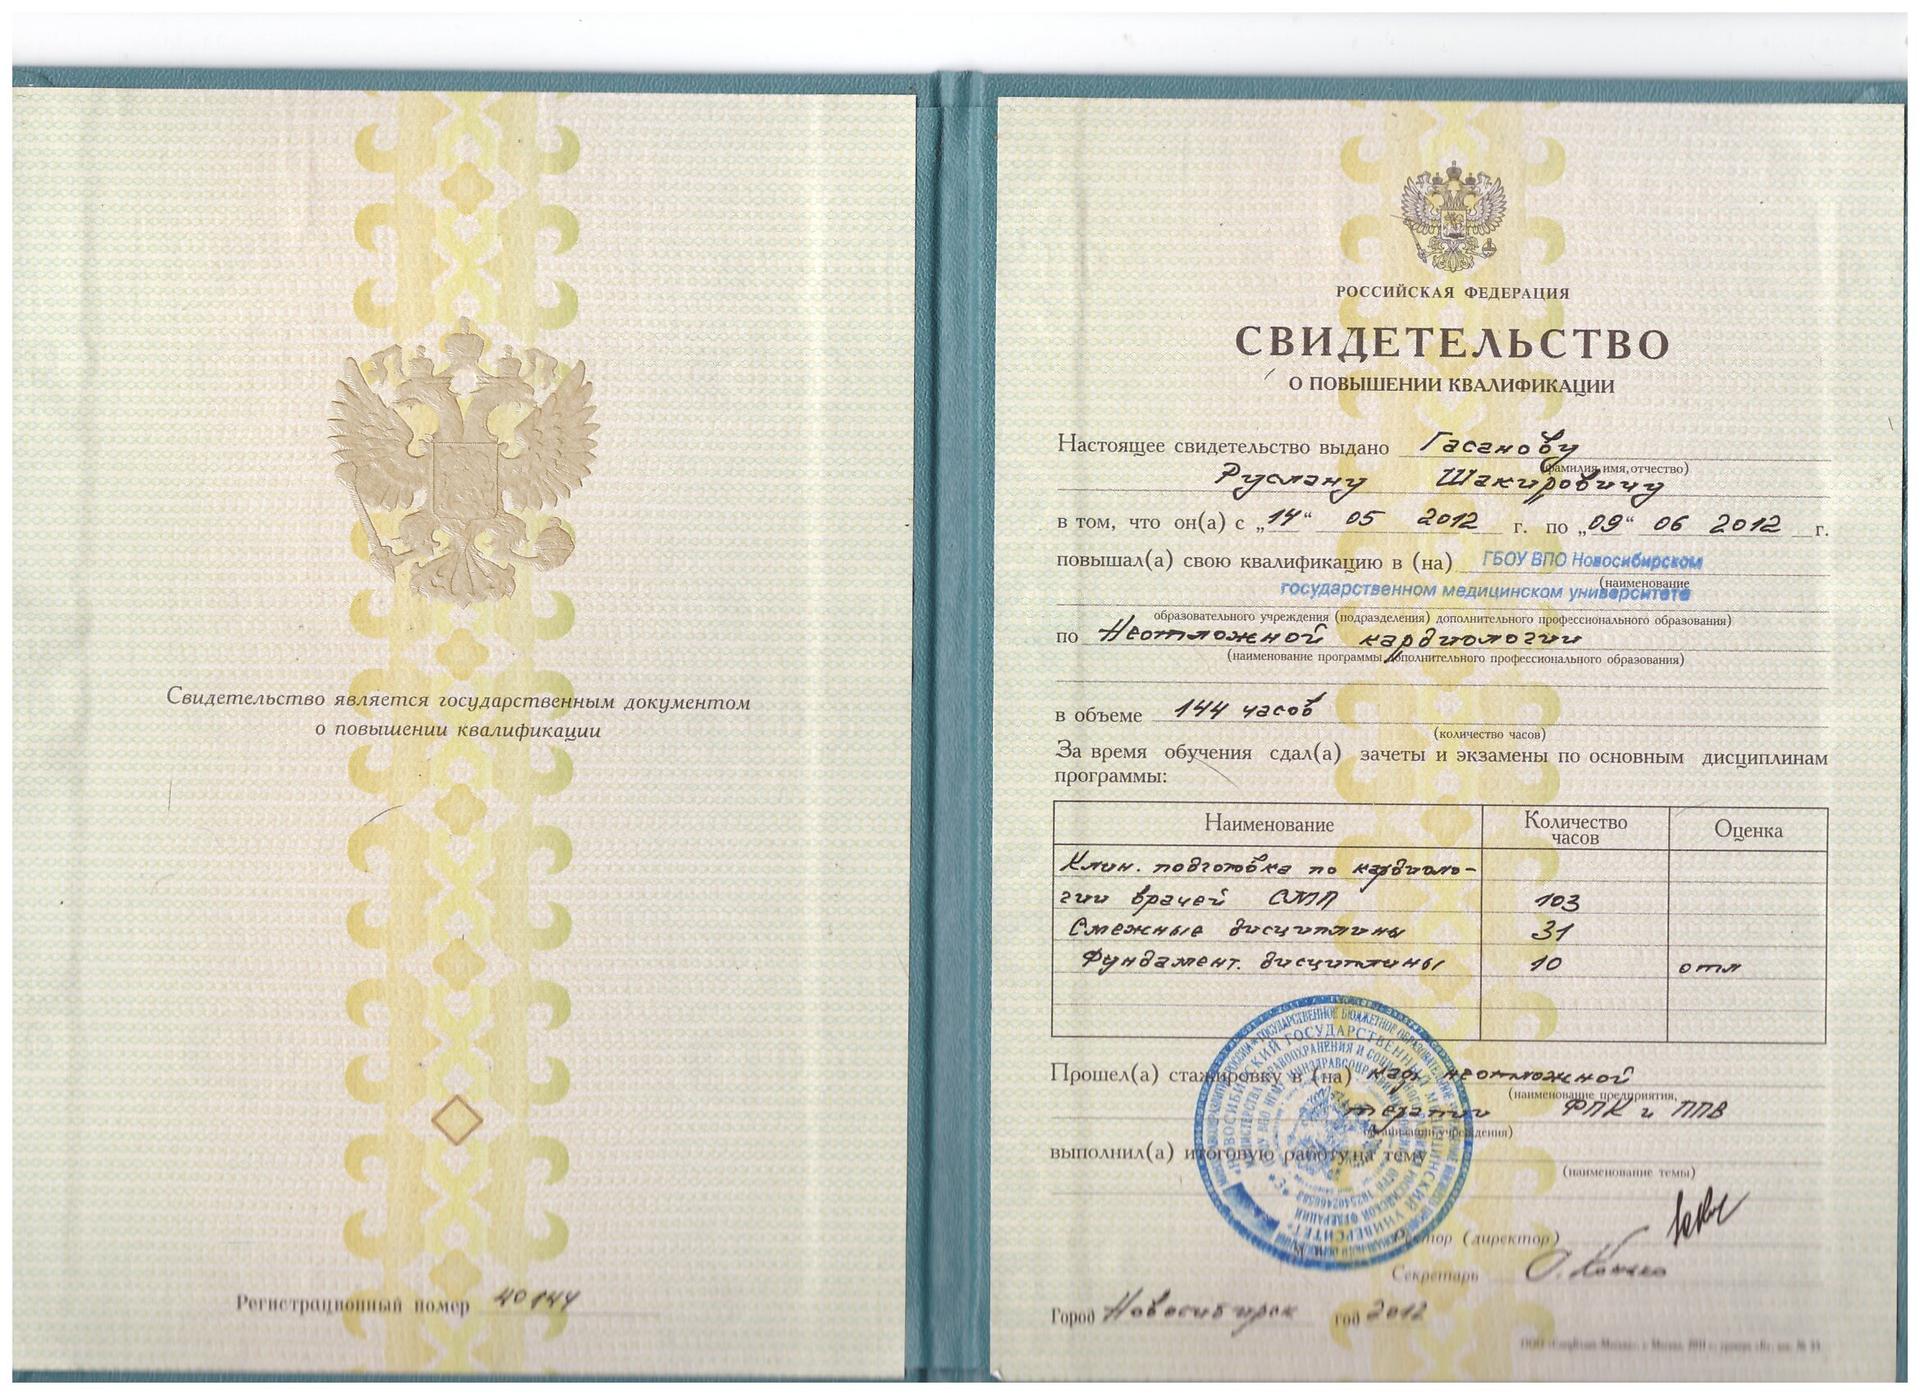 Свидетельство является государственным документом
о повышении квалификации
Регистрационный номер 40144
РОССИЙСКАЯ ФЕДЕРАЦИЯ
СВИДЕТЕЛЬСТВО
О ПОВЫШЕНИИ КВАЛИФИКАЦИИ
Настоящее свидетельство выдано Гасанову
(фамилия, имя, отчество)
Руслану Шакировичу
в том, что он(а) с „14“ 05 2012 г. по „09“ 06 2012 г.
повышал(а) свою квалификацию в (на) ГБОУ ВПО Новосибирском
(наименование
государственном медицинском университете
образовательного учреждения (подразделения) дополнительного профессионального образования)
по Неотложной кардиологии
(наименование программы дополнительного профессионального образования)
в объеме 144 часов
(количество часов)
За время обучения сдал(а) зачеты и экзамены по основным дисциплинам
программы:
Наименование Количество часов Оценка
Клин. подготовка по кардиоло-
гии врачей СМП 103
Смежные дисциплины 31
Фундамент. дисциплины 10 отл
Прошел(а) стажировку в (на) каф. неотложной
(наименование предприятия,
терапии ФПК и ППВ
организации, учреждения)
выполнил(а) итоговую работу на тему
(наименование темы)
НОВОСИБИРСКИЙ ГОСУДАРСТВЕННЫЙ МЕДИЦИНСКИЙ УНИВЕРСИТЕТ
Ректор (директор)
Секретарь
Город Новосибирск год 2012